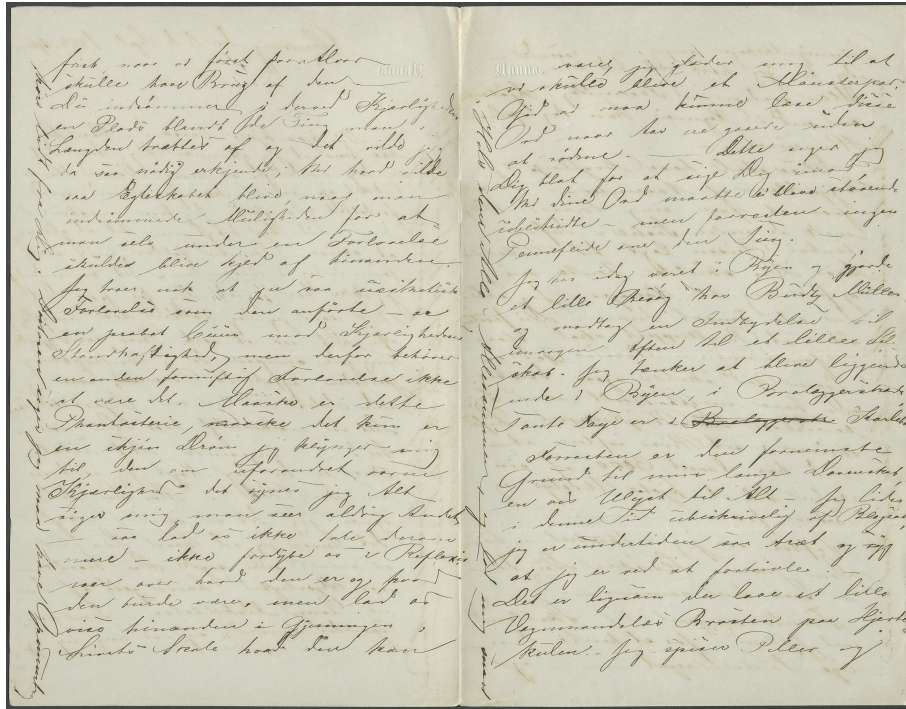 frisk naar vi først for Alvor
skulle have Brug af den
Du indrømmer jo derved Kjærligheden
en Plads blandt de Ting man i
Længden trættes af og det vilde jeg
da saa nødig erkjende, thi hvad vilde
saa Ægteskabet blive, naar man
indrømmede Muligheden for at
man selv under en Forlovelse
skulde blive kjed af hinanden
Jeg troer nok at
Forlovelse som den anførte – er
en probat Cuur mod Kjærlighedens
Standhaftighed, men derfor behøver
en anden fornuftig Forlovelse ikke
at være det. Maaske er dette
Phantasterie, maaske det kun er
en skjøn Drøm jeg klynger mig
til den om uforandret varm
Kjærlighed – det synes jeg Alt
siger mig man seer aldrig Andet
saa lad os ikke tale derom
mere – ikke fordybe os i Reflexio
ner over hvad den er og hvad
den burde være, men lad os
vise hinanden i Gjerningen
Livets Skole hvad den kan
være, jeg glæder mig til at
vi skulle blive et Mønsterpar.
Gid vi maa kunne læse disse
Ord naar ti Aar ere gaaede uden
at rødme. – Dette siger jeg
Dig blot for at sige Dig imod,
thi dine Ord maatte ei blive staaende
ubestridte – men forresten ingen
Pennefeide om den Ting. –
Jeg har idag været i Byen og gjorde
et lille Besøg hos Müller
og modtog en Indbydelse til
imorgen Aften til et lille Sel
skab. Jeg tænker at blive liggende
inde i Byen, i Brolæggerstræde
Tante er i
Forresten er den fornemste
Grund til min lange Taushed
en vis Ulyst til Alt – Jeg lider
i denne Tid ubeskrivelig af Blegsot
jeg er undertiden saa træt og
at jeg er ved at fortvivle –
Det er ligesom der laae et lille
Vognmandslæs Brosten paa Hjerte
kulen. Jeg spiser Piller og